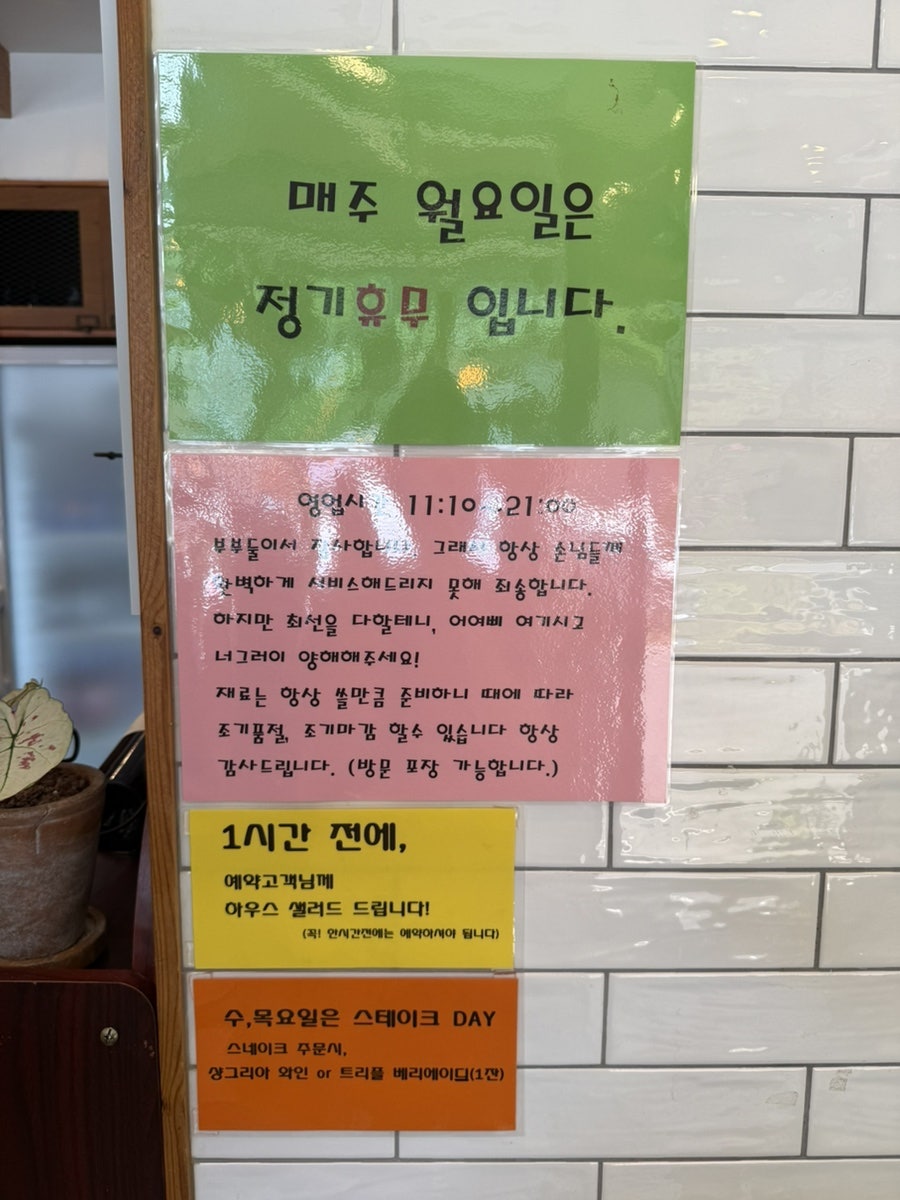 매주 월요일은
정기휴무 입니다.
영업시간 11:10~21:00
부부둘이서 장사합니다. 그래서 항상 손님들께
완벽하게 서비스해드리지 못해 죄송합니다.
하지만 최선을 다할테니, 어여삐 여기시고
너그러이 양해해주세요!
재료는 항상 쓸만큼 준비하니 때에 따라
조기품절, 조기마감 할수 있습니다 항상
감사드립니다. (방문 포장 가능합니다.)
1시간 전에,
예약고객님께
하우스 샐러드 드립니다!
(꼭! 한시간전에는 예약하셔야 됩니다)
수,목요일은 스테이크 DAY
스네이크 주문시,
샹그리아 와인 or 트리플 베리에이드(1잔)